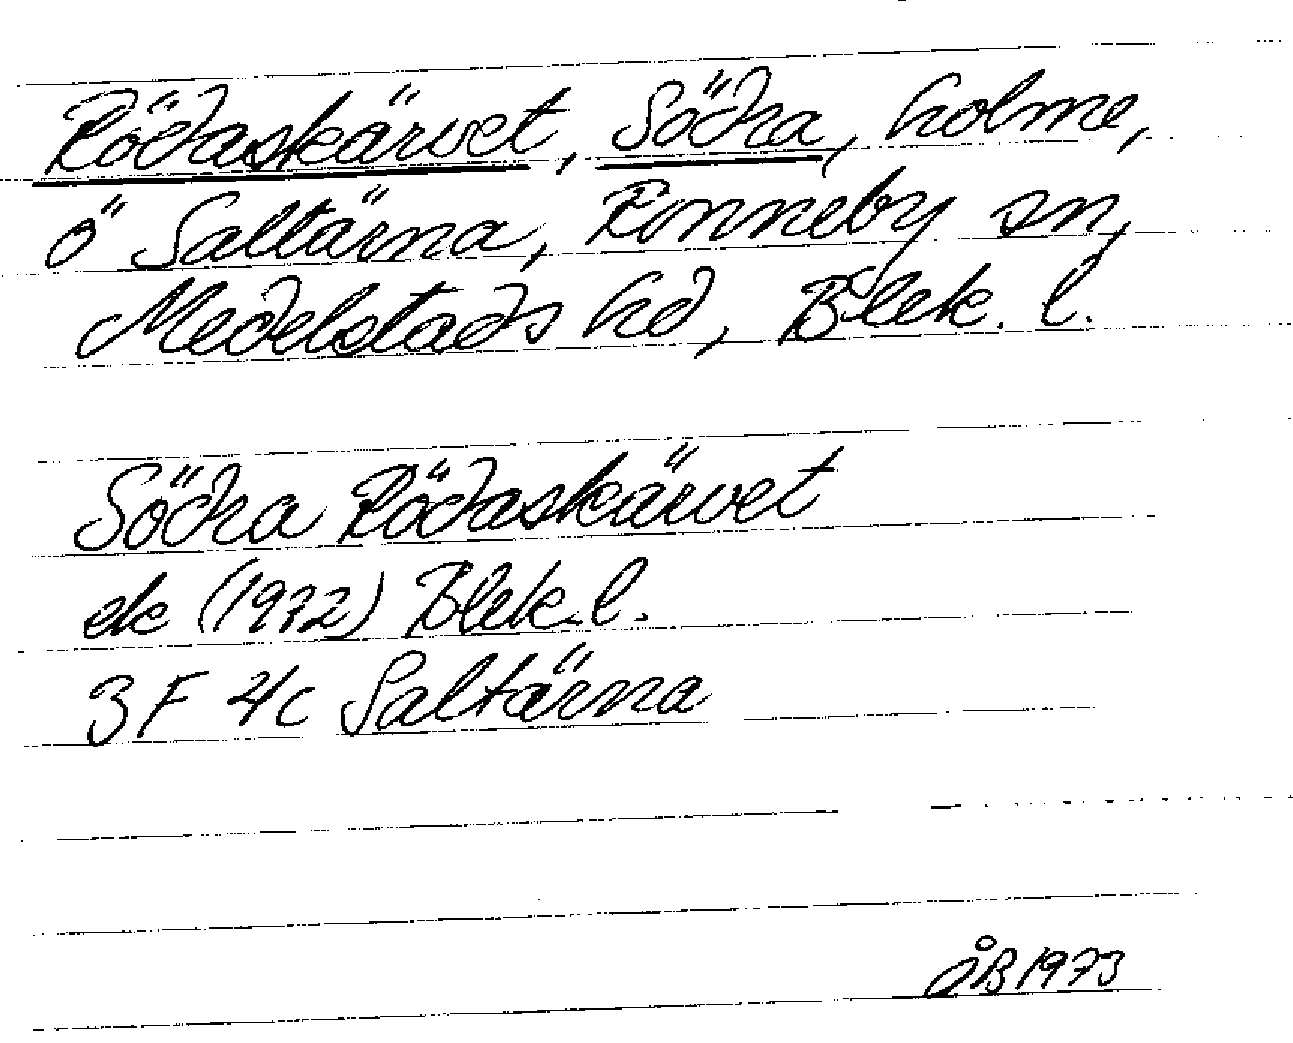 Rödaskärvet, Södra, holme,
ö Saltärna, Ronneby sn,
Medelstads hd, Blek. l.
Södra Rödaskärvet
ek (1972) Blek. l.
3 F 4c Saltärna
ÅB 1973